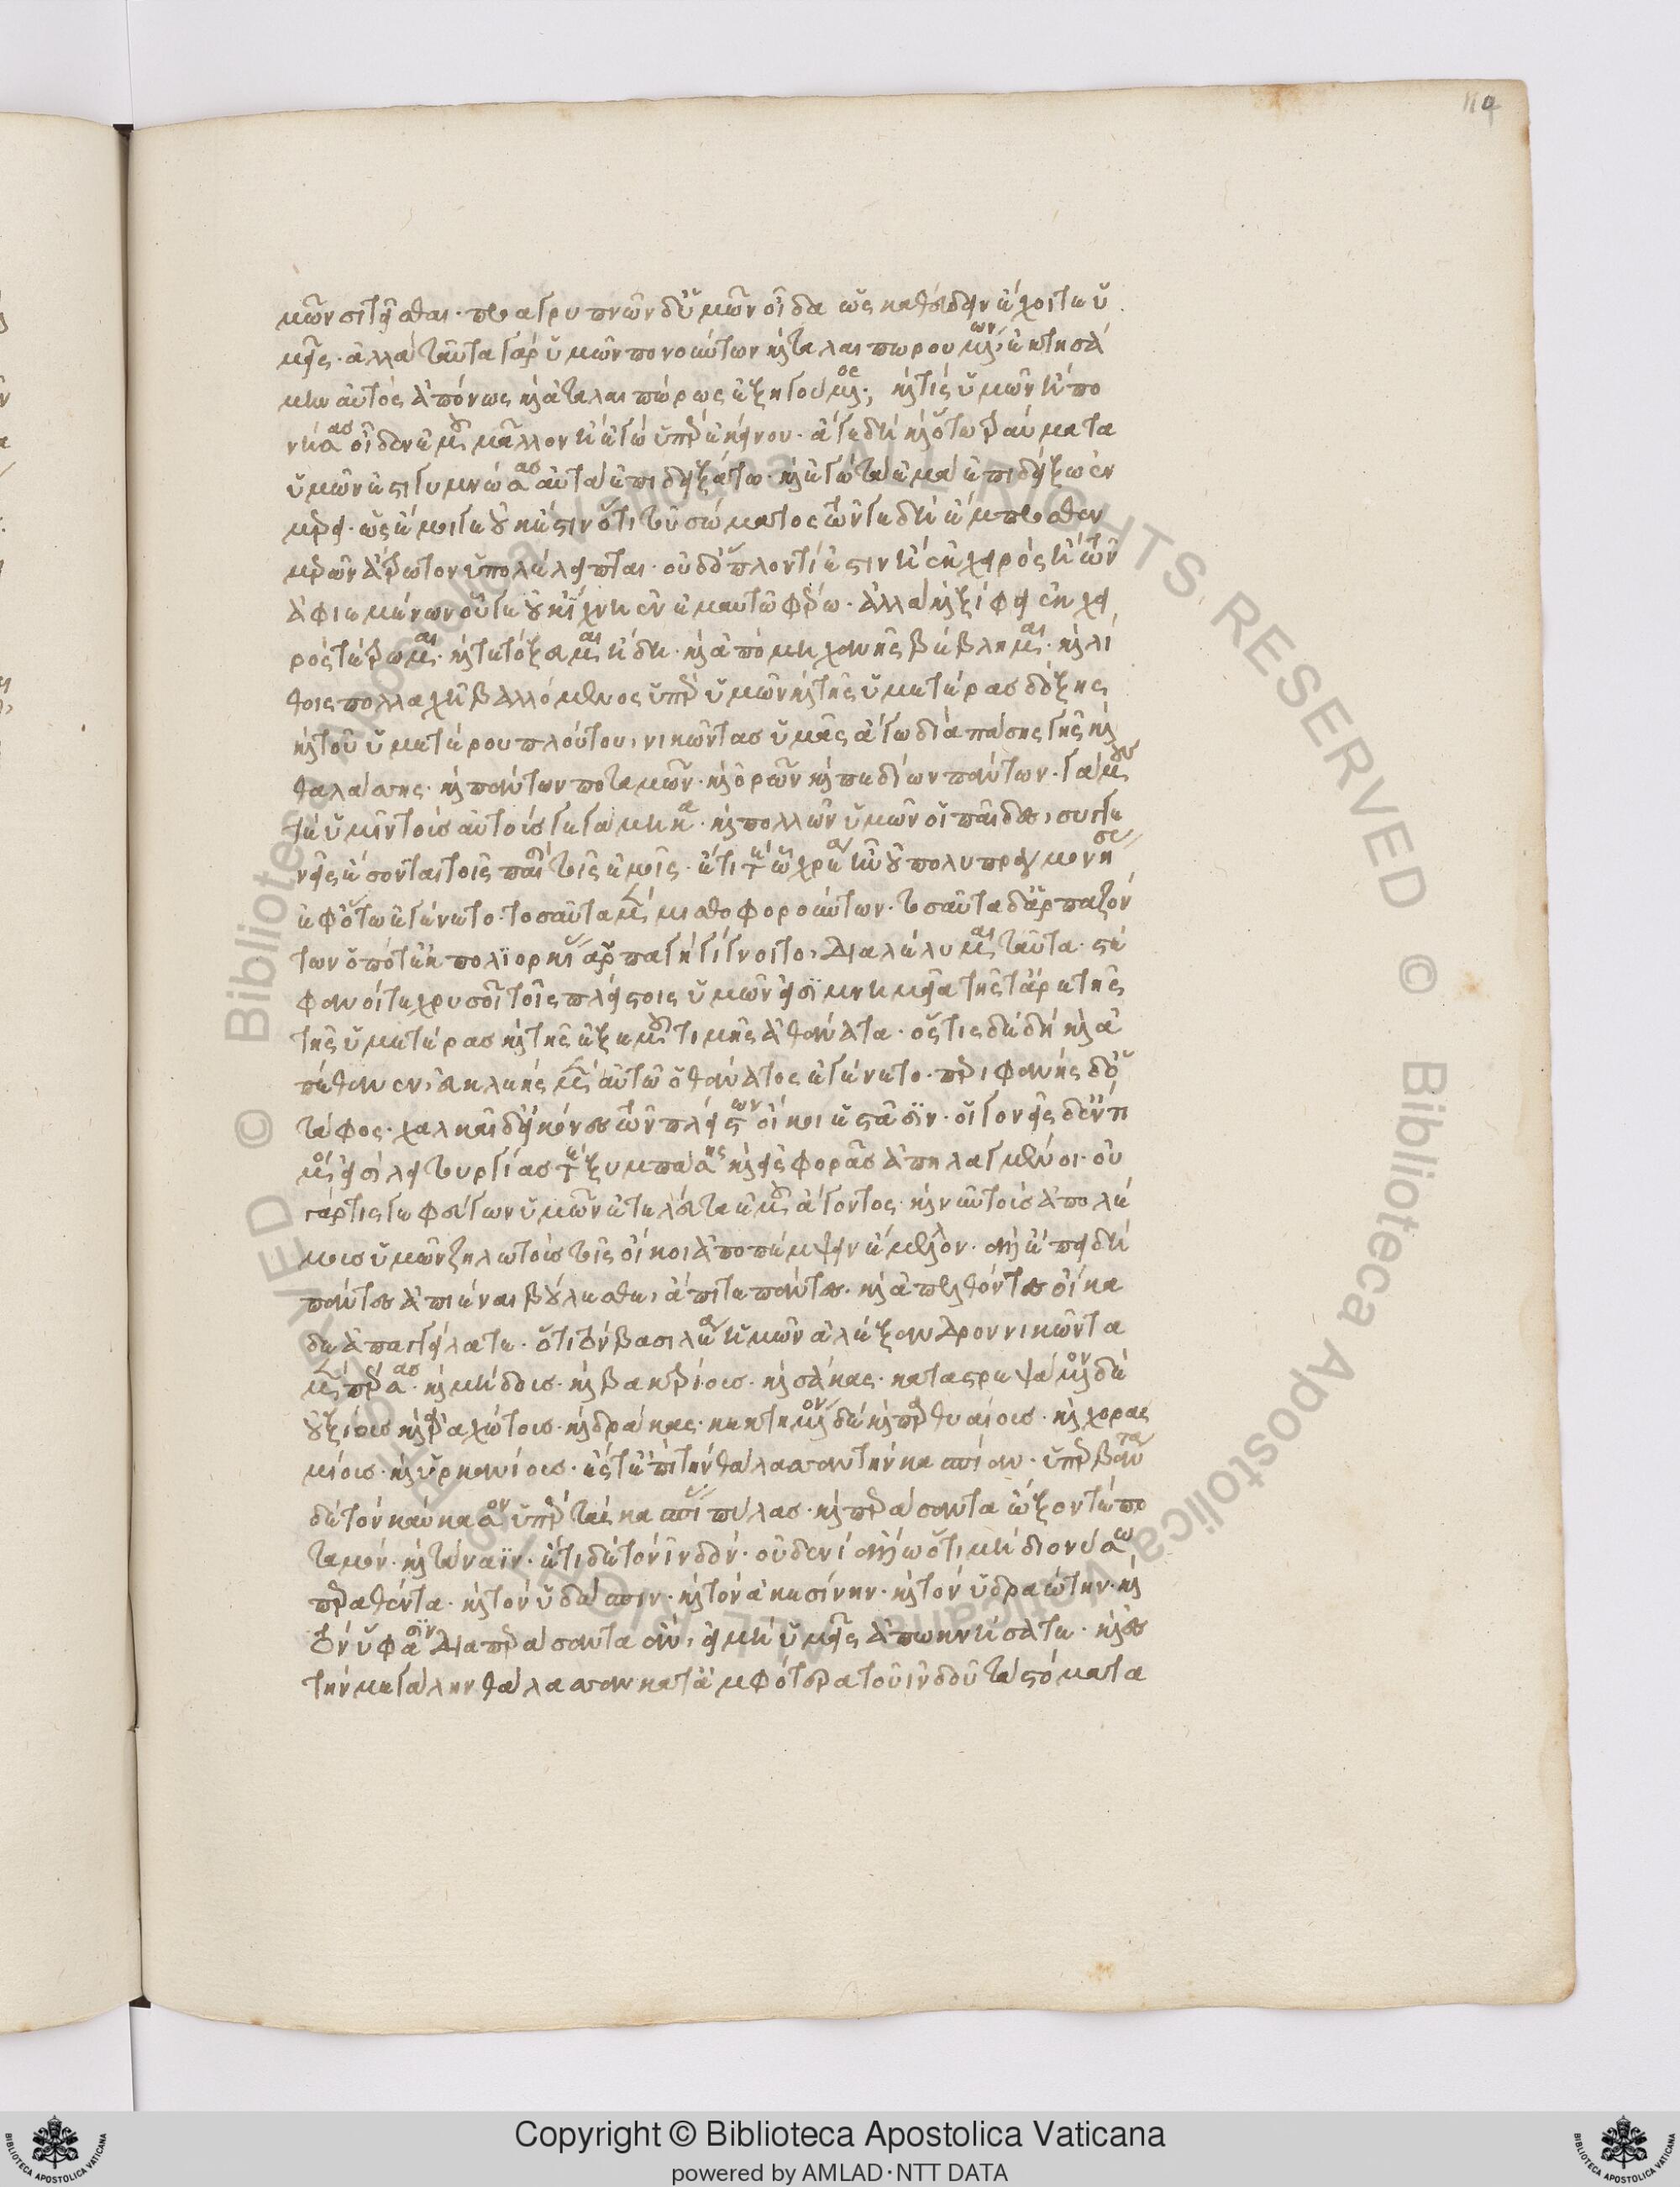 μῶν σιτεῖσθαι· προαγρυπνῶν δ' ὑμῶν οἶδα ὡς καθεύδειν ἔχοιτε ὑ
μεῖς· ἀλλὰ ταῦτα γὰρ ὑμῶν πονούντων καὶ ταλαιπωρουμένων, ἐκτησά
μην αὐτὸς ἀπόνως καὶ ἀταλαιπώρως ἐξηγούμενος; καὶ τίς ὑμῶν ἢ πο
νήσας οἶδεν ἐμοῦ μᾶλλον ἢ ἐγὼ ὑπὲρ ἐκείνου· ἄγε δὴ καὶ ὅτω τραύματα
ὑμῶν ἐστι γυμνώσας αὐτὰ ἐπιδειξάτω· καὶ ἐγὼ τὰ ἐμὰ ἐπιδείξω ἐν
μέρει· ὡς ἔμοιγε οὐκ ἔστιν ὅτι τοῦ σώματος τῶν γε δὴ ἔμπροσθεν
μερῶν ἄτρωτον ὑπολέλειπται· οὐδ' ὅπλον τί ἐστιν ἢ ἐκ χειρὸς ἢ τῶν
ἀφιεμένων οὗ γε οὐκ ἴχνη ἐν ἐμαυτῶ φέρω· ἀλλὰ καὶ ξίφει ἐκ χει
ρὸς τέτρωμαι· καὶ τετόξευμαι ἤδη· καὶ ἀπὸ μηχανῆς βέβλημαι· καὶ λί
θοις πολλαχῆ βαλλόμενος ὑπὲρ ὑμῶν καὶ τῆς ὑμετέρας δόξης
καὶ τοῦ ὑμετέρου πλούτου, νικῶντας ὑμᾶς ἄγω διὰ πάσης γῆς καὶ
θαλάσσης· καὶ πάντων ποταμῶν· καὶ ὀρῶν καὶ πεδίων πάντων· γάμους
τε ὑμῖν τοὺς αὐτοὺς γεγάμηκα· καὶ πολλῶν ὑμῶν οἱ παῖδες, συγγε
νεῖς ἔσονται τοῖς παισὶ τοῖς ἐμοῖς· ἔτι τὲ ὧ χρέα ἦν οὐ πολυπραγμονήσας
ἐφ' ὅτω ἐγένετο· τοσαῦτα μὲν μισθοφορούντων· τοσαῦτα δ' ἁρπαζόν
των ὁπότ' ἐκ πολιορκίας ἁρπαγὴ γίγνοιτο, διαλέλυμαι ταῦτα· στέ
φανοί τε χρυσοῖ τοῖς πλείστοις ὑμῶν εἰσὶ μνημεῖα τῆς τ' ἀρετῆς
τῆς ὑμετέρας καὶ τῆς ἐξ ἐμοῦ τιμῆς ἀθάνατα· ὅστις δὲ δὴ καὶ ἀ
πέθανεν, εὐκλεὴς μὲν αὐτῶ ὁ θάνατος ἐγένετο· περιφανὴς δ' ὁ
τάφος· χαλκαῖ δ' εἰκόνες τῶν πλείστων οἴκοι ἑστᾶσιν· οἱ γονεῖς δ' ἔντι
μοί εἰσι λειτουργίας τὲ ξυμπάσης καὶ εἰσφορᾶς ἀπηλαγμένοι· οὐ
γάρ τις γε φεύγων ὑμῶν ἐτελεύτα ἐμοῦ ἄγοντος· καὶ νῦν τοὺς ἀπολέ
μους ὑμῶν ζηλωτοὺς τοῖς οἴκοι ἀποπέμψειν ἔμελλον· ἀλλ' ἐπειδὴ
πάντες ἀπιέναι βούλεσθε, ἄπιτε πάντες· καὶ ἀπελθόντες οἴκα
δε ἀπαγγείλατε· ὅτι τὸν βασιλέα ὑμῶν ἀλέξανδρον νικῶντα
μὲν πέρσας· καὶ μήδους· καὶ βακτρίους· καὶ σάκας· καταστρεψάμενον δὲ
οὐξίους καὶ ἀραχώτους· καὶ δράκας· κεκτημένον δὲ καὶ παρθυαίους· καὶ χορασ
μίους· καὶ ὑρκανίους· ἔστ' ἐπὶ τὴν θάλασσαν τὴν κασπίαν· ὑπερβάντα
δὲ τὸν καύκασον ὑπὲρ τὰς κασπίας πύλας· καὶ περάσαντα ὦξόν τε πο
ταμόν· καὶ τάναϊν· ἔτι δὲ τὸν ἰνδόν· οὐδενὶ ἄλλω ὅτι μὴ διονύσω
περαθέντα· καὶ τὸν ὑδάσπιν· καὶ τὸν ἀκεσίνην· καὶ τὸν ὑδραώτην· καὶ
τὸν ὕφασιν διαπεράσαντα ἂν, εἰ μὴ ὑμεῖς ἀπωκνήσατε· καὶ ἐς
τὴν μεγάλην θάλασσαν κατ' ἀμφότερα τοῦ ἰνδοῦ τὰ στόματα
Copyright © Biblioteca Apostolica Vaticana
powered by AMLAD·NTT DATA